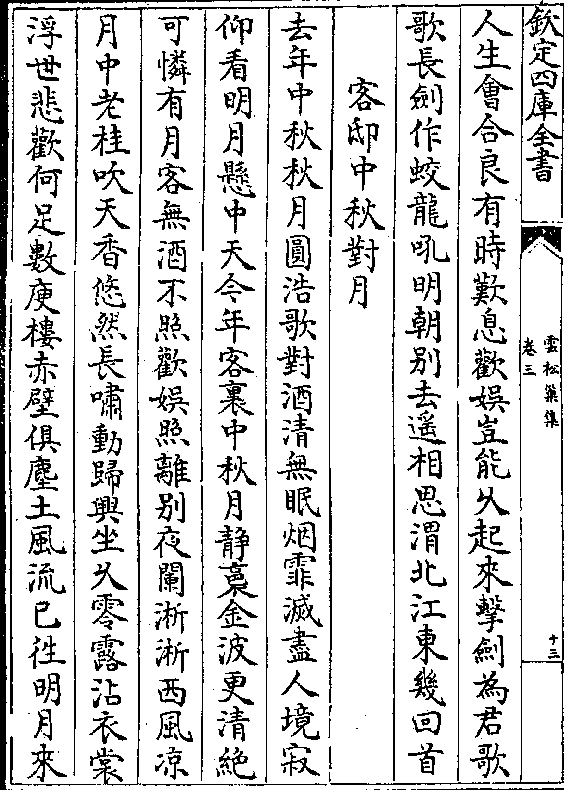 欽定四庫全書
雲松巢集
卷三
十三
人生會合良有時歎息歡娛豈能久起來擊劍為君歌
歌長劍作蛟龍吼明朝别去遥相思渭北江東幾回首
客邸中秋對月
去年中秋秋月圓浩歌對酒清無眠烟霏滅盡人境寂
仰看明月懸中天今年客裏中秋月静裛金波更清絶
可憐有月客無酒不照歡娱照離别夜闌淅淅西風凉
月中老桂吹天香悠然長嘯動歸興坐久零露沾衣裳
浮世悲歡何足數庾樓赤壁俱塵土風流已徃明月來